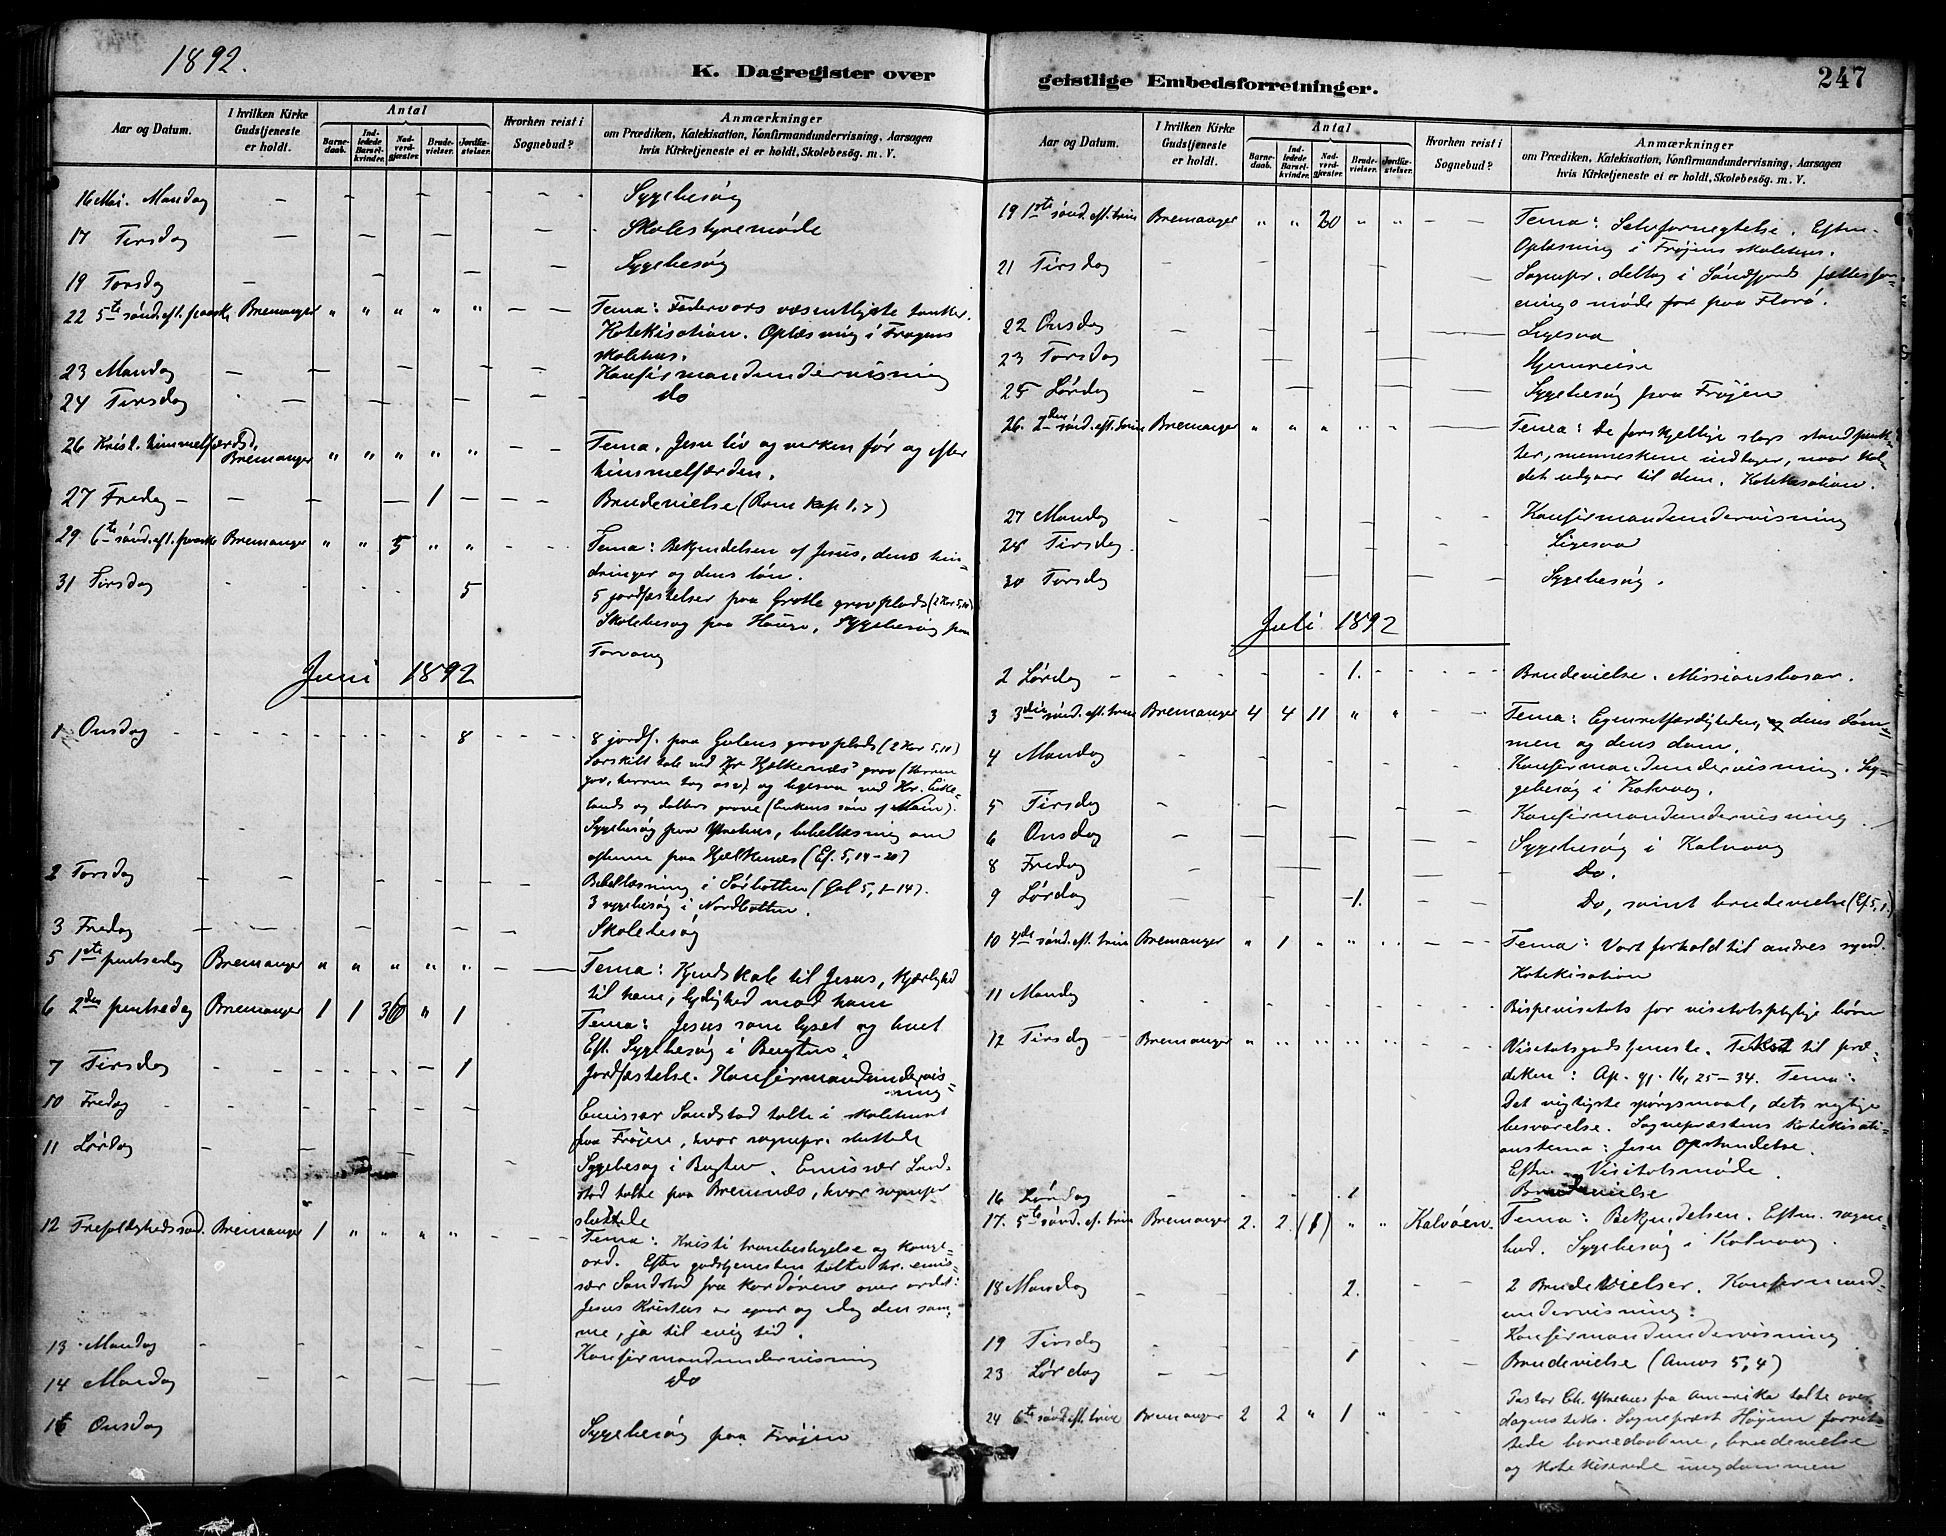 1892.
K. Dagregister over
Aar og Datum.
I hvilken Kirke Gudstjeneste er holdt.
Antal
Barne-daab.
Ind-ledede Barsel-kvinder.
Nad-verd-gjæster.
Brude-vielser.
Jordfæ-stelser.
Hvorhen reist i Sognebud?
Anmærkninger
om Prædiken, Katekisation, Konfirmandundervisning, Aarsagen
hvis Kirketjeneste ei er holdt, Skolebesög. m. V.
16 Mai. Mandag — — — — — — — Sygebesøg
17 Tirsdag — — — — — — — Skolestyremøde
19 Torsdag — — — — — — — Sygebesøg
22 5te sønd. eft. paaske Bremanger " " " " " — — Tema:
Katekisation. Oplæsning i Frøyens
skolehus.
23 Mandag — — — — — — — Konfirmandundervisning
24 Tirsdag — — — — — — — do
26 Krist. himmelfærdsd. Bremanger " " " " " — — Tema. Jesu liv og virken før og efter
himmelfærden.
27 Fredag — — — — 1 — — Brudevielse (Rom kap 1,7)
29 6te sønd. eft. paaske Bremanger " " 5 " " — — Tema: Bekjendelsen af Jesus, dens hin-
dringer og dens løn.
31 Tirsdag 5 5 jordfæstelser paa Grotle gravplads (2 Kor 5,10)
Skolebesøg paa Hauge, Sygebesøg paa
Torvang
Juni 1892
1 Onsdag 8 8 jordf. paa Gulens gravplads (2 Kor 5,10)
Særskilt tale ved Hjelkenæs' grav (Herren
gav, herren tog osv) og ligesaa ved
lands og datters grave (Enkens søn af Nain).
Sygebesøg paa Ytrehus, bibellæsning om
aftenen paa Hjelkenæs (Ef. 5, 14-20)
2 Torsdag — — — — — — — Bibellæsning i Sørbotten (Gal 5, 1-14).
3 sygebesøg i Nordbotten.
3 Fredag — — — — — — — Skolebesøg
5 1ste pintsedag Bremanger " " " " " — — Tema: Kjendskab til Jesus, kjærlighed
til ham, lydighed mod ham
6 2den pintsedag Bremanger 1 1 36 " 1 Tema: Jesus som lyset og livet
Eft. Sygebesøg i Bugten.
7 Tirsdag — 1 Jordfæstelse. Konfirmandundervis-
ning
10 Fredag — — — — — — Emissær Sandstad talte i skolehuset
paa Frøjen, hvor sognepr. sluttede
11 Lørdag — — — — — — Sygebesøg i Bugten. Emissær Sand-
stad talte paa Bremnæs, hvor sognepr
sluttede
12 Trefoldighedssønd. Bremanger 1 " " " " Tema: Kristi tronbestigelse og konge-
ord. Efter gudstjenesten talte hr. emis-
sær Sandstad fra kordøren over ordet:
Jesus Kristus er igaar og idag den sam-
me, ja til evig tid.
13 Mandag — — — — — Konfirmandundervisning
14 Mandag — — — — — do
15 Onsdag — — — — — Sygebesøg paa Frøjen
geistlige Embedsforretninger.
247
Aar og Datum.
I hvilken Kirke Gudstjeneste er holdt.
Antal
Barne-daab.
Ind-ledede Barsel-kvinder.
Nad-verd-gjæster.
Brude-vielser.
Jordfæ-stelser.
Hvorhen reist i Sognebud?
Anmærkninger
om Prædiken, Katekisation, Konfirmandundervisning, Aarsagen
hvis Kirketjeneste ei er holdt, Skolebesög. m. V.
19 1ste sønd. eft. trin Bremanger " " 20 " " — — Tema: Selvfornegtelse. Eftm.
Oplæsning i Frøjens skolehus.
21 Tirsdag — — — — — Sognepr. deltog i Søndfjords fællesfor-
enings møde paa Florø.
22 Onsdag — — — — — Ligesaa
23 Torsdag — — — — — Hjemreise
25 Lørdag — — — — — Sygebesøg paa Frøjen
26. 2den sønd. eft. trin Bremanger " " " " " — Tema: De forskjellige slags standpunk-
ter, menneskene indtager, naar kal-
det udgaar til dem. Katekisation.
27 Mandag — — — — — Konfirmandundervisning
28 Tirsdag — — — — — Ligesaa
30 Torsdag — — — — — Sygebesøg.
Juli 1892
2 Lørdag — — — — 1. — — Brudevielse. Missionsbasar.
3 3die sønd. eft. trin Bremanger 4 4 11 " " — — Tema: Egenretfærdigheden, dens døm-
men og dens dom.
4 Mandag — — — — — Konfirmandundervisning. Sy-
gebesøg i Kalvaag.
5 Tirsdag — — — — — Konfirmandundervisning
6 Onsdag — — — — — Sygebesøg i Kalvaag
8 Fredag — — — — — Do.
9 Lørdag — — — — 1. — — Do, samt brudevielse (Ef 5,1.)
10 4de sønd. eft. trin Bremanger " 1 " " " — — Tema: Vort forhold til andres synd.
Katekisation
11 Mandag — — — — — Bispevisitats for visitatspligtige børn
12 Tirsdag — Bremanger " " " " " — — Visitatsgudstjeneste. Tekst til præ-
diken: Ap. gj. 16, 25-34. Tema:
Det vigtigste spørgsmaal, dets rigtige
besvarelse. Sogneprestens katekisati-
onstema: Jesu Opstandelse.
Eftm. Visitatsmøde.
16 Lørdag — — — — 1 — — Brudevielse
17. 5te sønd. ef. trin Bremanger 2. 2. (1) " " Kalvøen. Tema: Bekjendelsen. Eftm. sogne-
bud. Sygebesøg i Kalvaag.
18 Mandag — — — — 2. — — 2 Brudevielser. Konfirmand-
undervisning.
19 Tirsdag — — — — — Konfirmandundervisning
23 Lørdag 1 — — Brudevielse (Amos 5,4)
24 6te sønd. eft. trin Bremanger 2 2 " 1 " Pastor Ch. Ytrehus fra Amerika talte over
dagens tekst. Sogneprest Højem forret-
tede barnedaabene, brudevielse
og katekiserede ungdommen